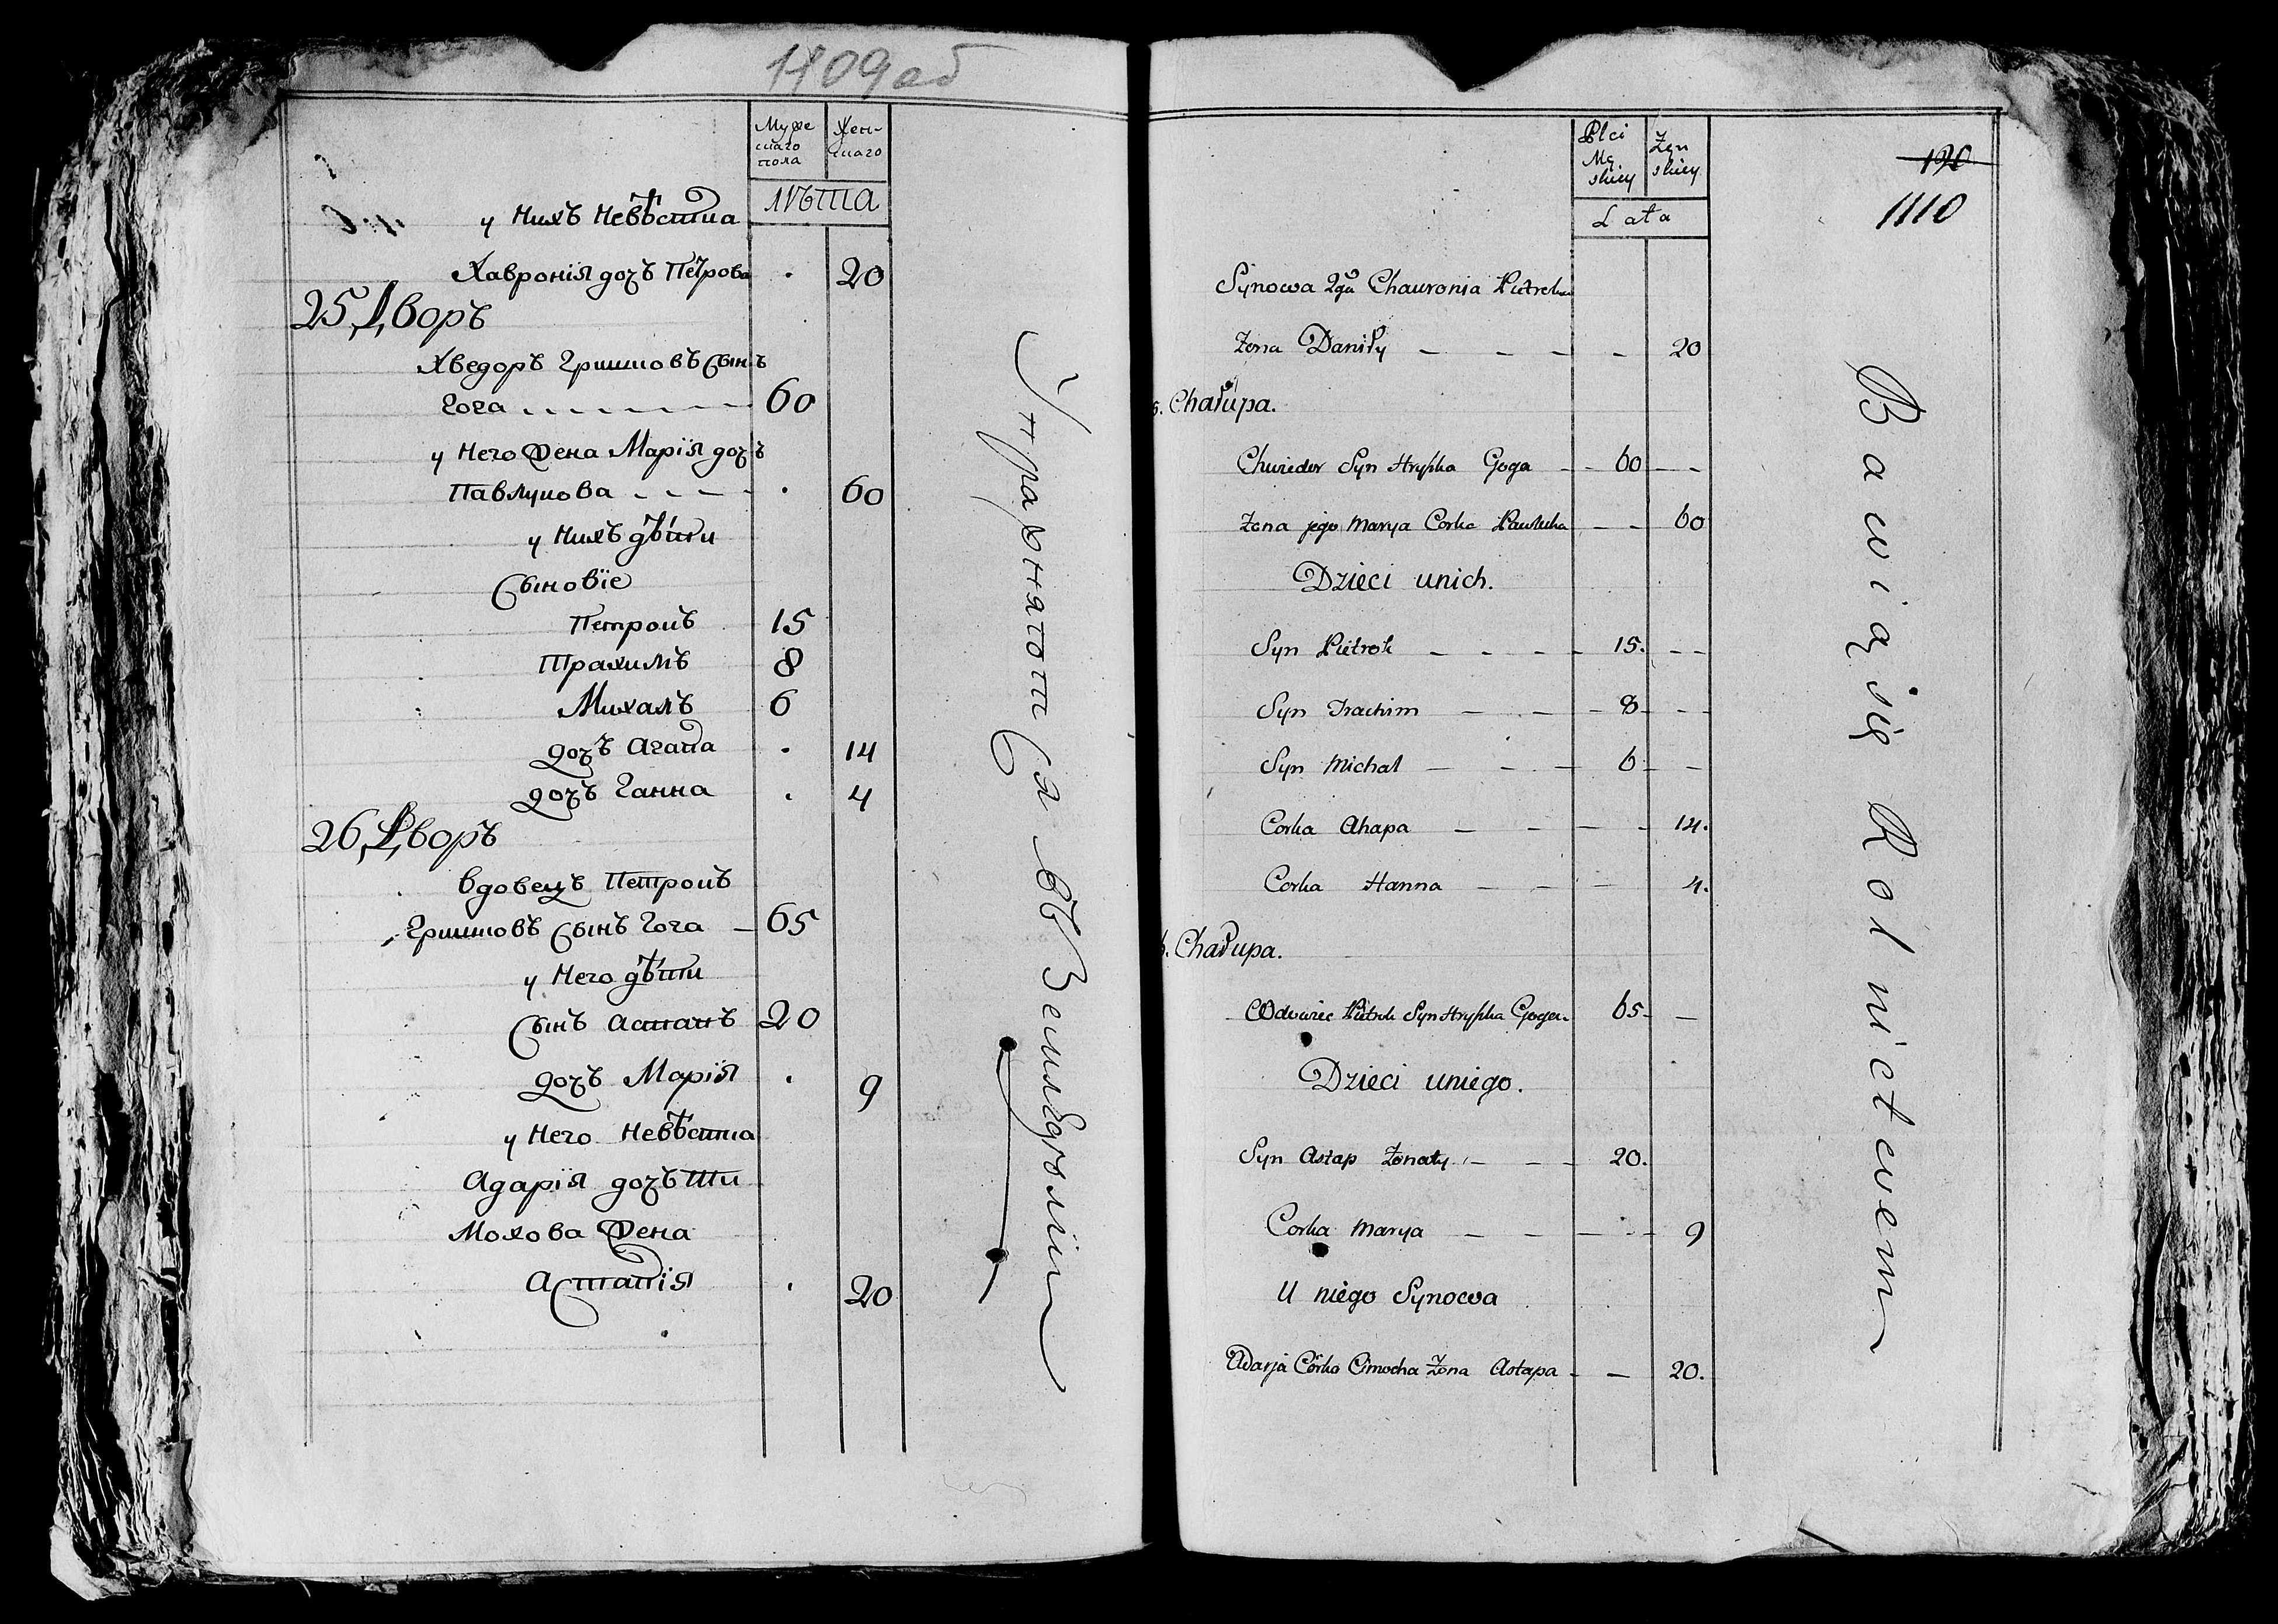 1109об
Муже
скаго
пола
Жен-
скаго
лѣта
у нихъ невѣстка
Хавронія дочь Петрова . 20
25 Дворъ
Хведоръ Гришковъ сынъ
Гога 60
у него жена Марія дочь
Павлукова . 60
у нихъ дѣти
Сыновіе
Петрокъ 15
Трахимъ 8
Михалъ 6
дочь Агапа . 14
дочь Ганна . 4
26 Дворъ
вдовецъ Петрокъ
Гришковъ сынъ Гога 65
у него дѣти
сынъ Астапъ 20
дочь Марія . 9
у него невѣстка
Адарія дочь Ти
мохова жена
Астапія . 20
Упражняются въ Земледѣліи
Plci
Mę
skiey
Żeń
skiey
Lata
190
1110
Synowa 2ga Chauronia Pietroka
Zona Daniły - - - - 20
5. Chałupa.
Chwiedor Syn Hryszka Goga - - 60 - -
Zona jego Marya Corka Pauluka - - 60
Dzieci unich.
Syn Pietrok - - - - 15. - -
Syn Trachim - - - - 8 - -
Syn Michal - - - 6 - -
Corka Ahapa - - - - 14.
Corka Hanna - - - 4.
6. Chałupa.
Wdowiec Pietrok Syn Hryszka Goga - 65 - -
Dzieci uniego.
Syn Astap Zonaty - - - 20.
Corka Marya - - - - - 9
U niego Synowa
Adarja Córka Cimocha Zona Astapa - - 20.
Bawią się Rolnictwem